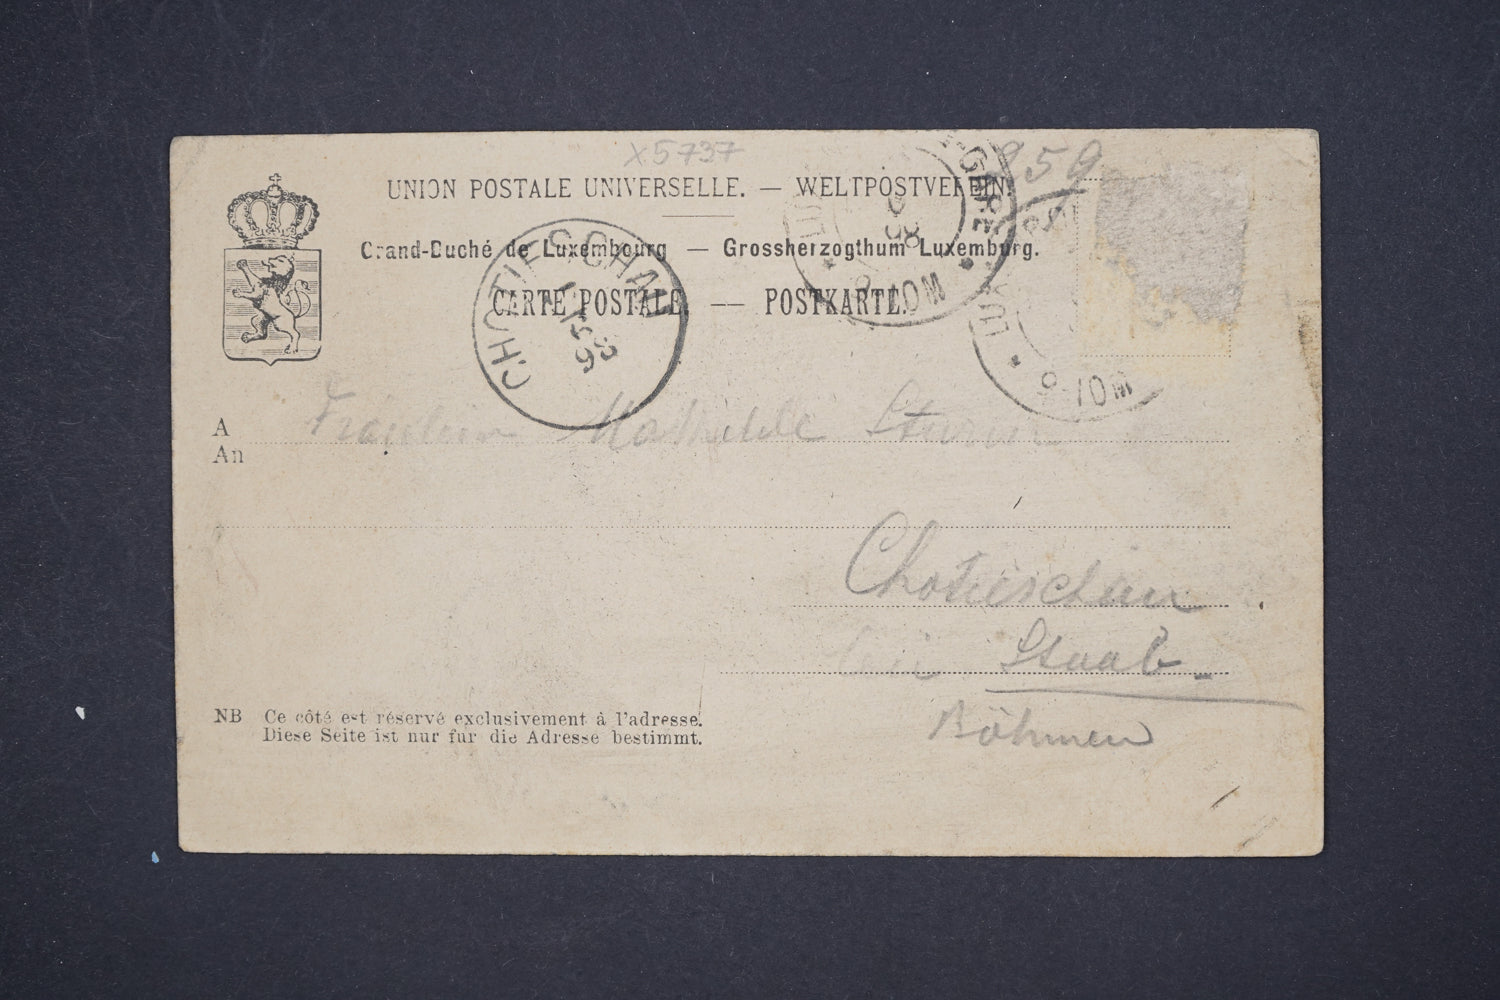 X5737
UNION POSTALE UNIVERSELLE. — WELTPOSTVEREIN.
Grand-Duché de Luxembourg — Grossherzogthum Luxemburg.
CARTE POSTALE. — POSTKARTE.
CHOTIESCHAU
98
9-10M
9-10M
A Fräulein Mathilde
An
Chotieschau
bei Staab
Böhmen
NB Ce côté est réservé exclusivement à l'adresse.
Diese Seite ist nur für die Adresse bestimmt.